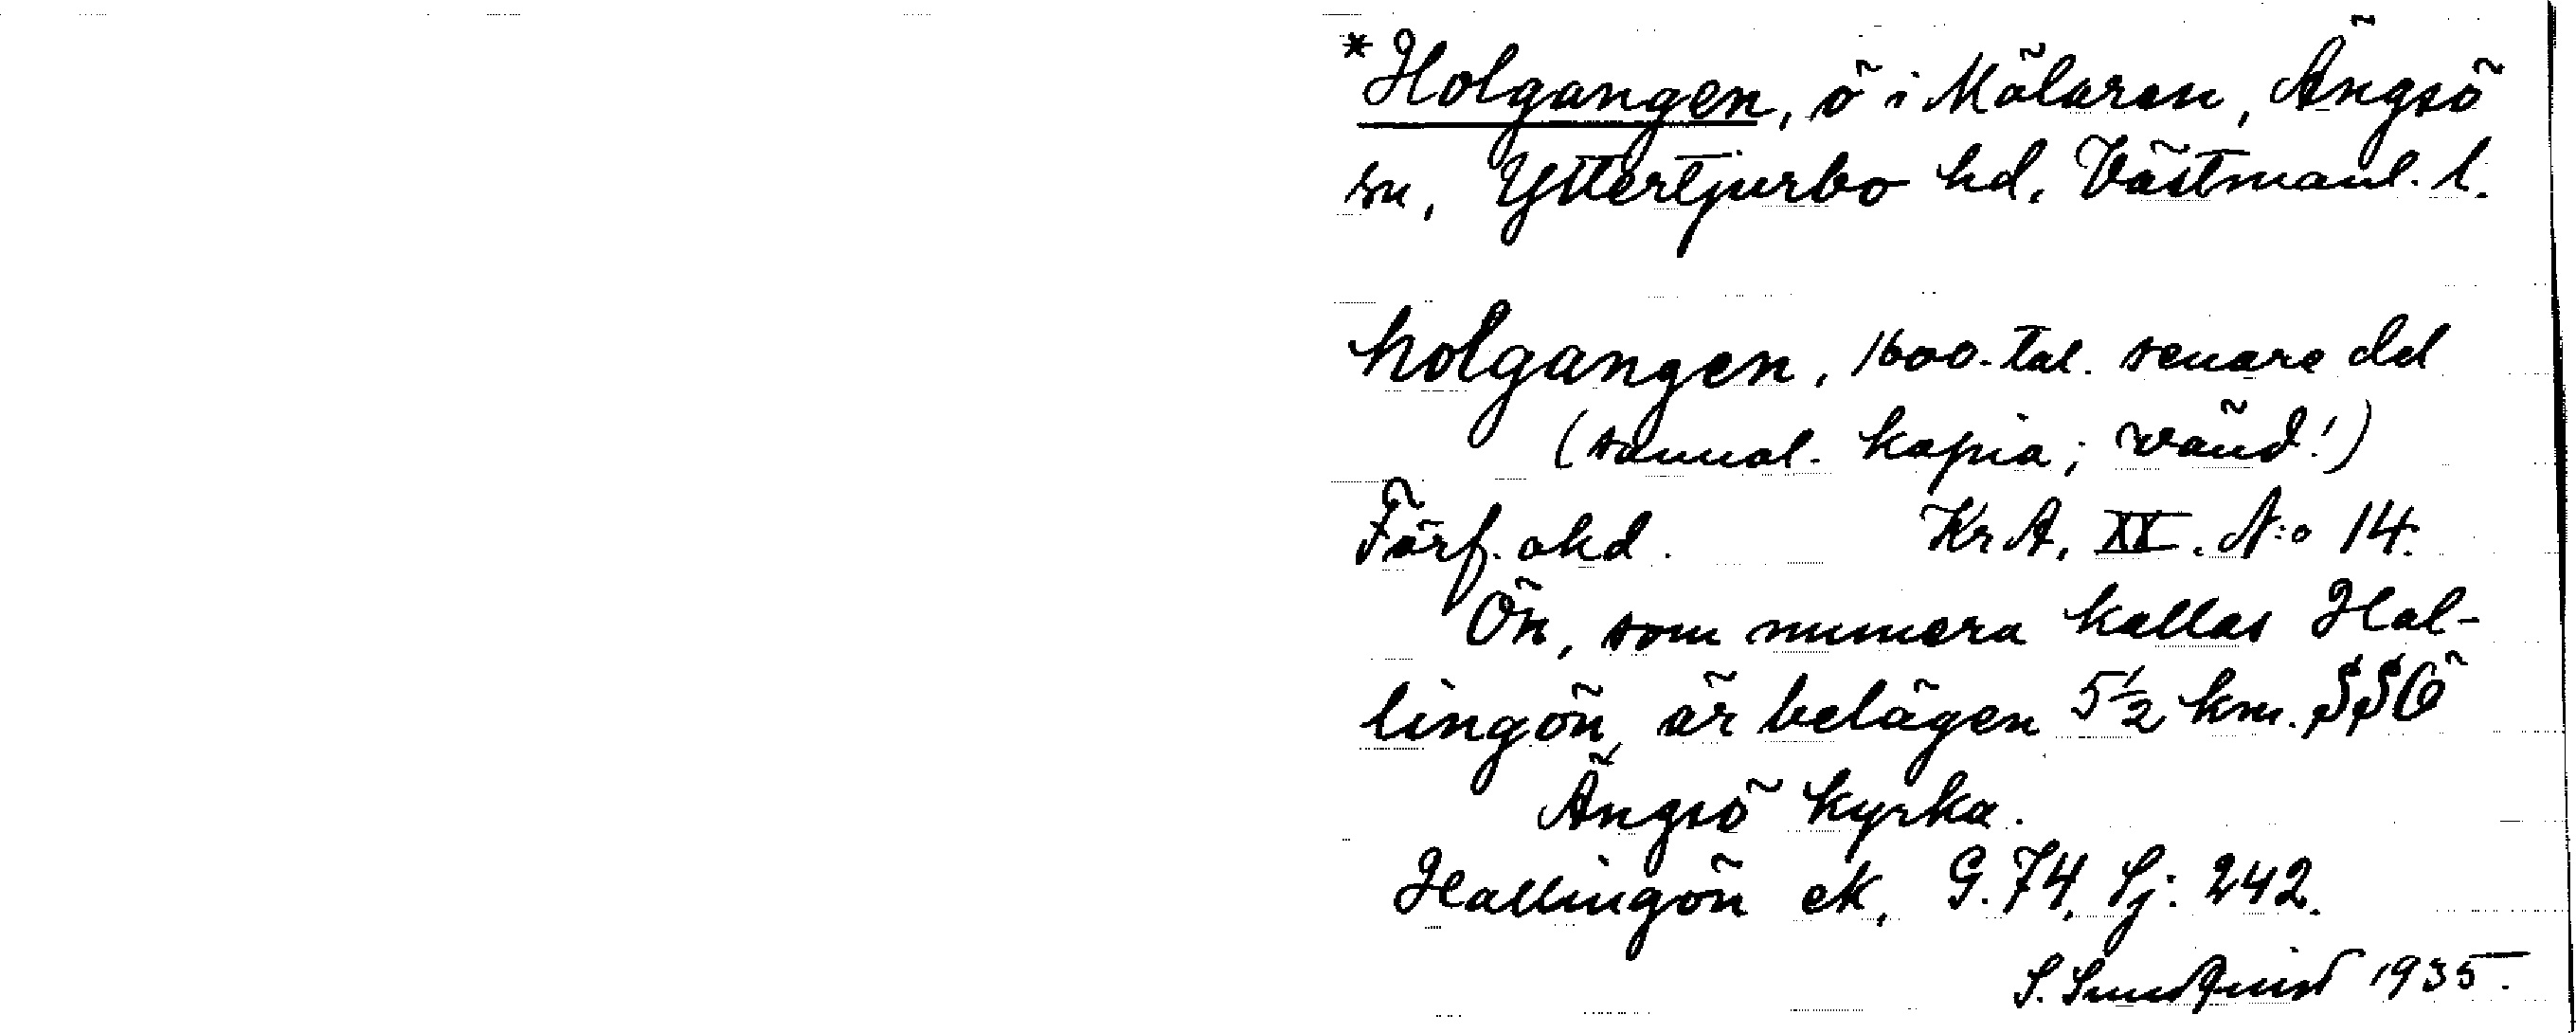 *Holgangen, ö i Mälaren, Ängsö
sn, Yttertjurbo hd, Västmanl. l.
holgangen, 1600-tal. senare del
(samal. kopia; vänd!)
Förf. okd. KrA, XX. N:o 14.
Ön, som numera kallas Hal-
lingön, är belägen 5½ km. SSÖ
Ängsö kyrka.
Hallingön ek, G. 74, Sj: 242.
S. Sundquist 1935.